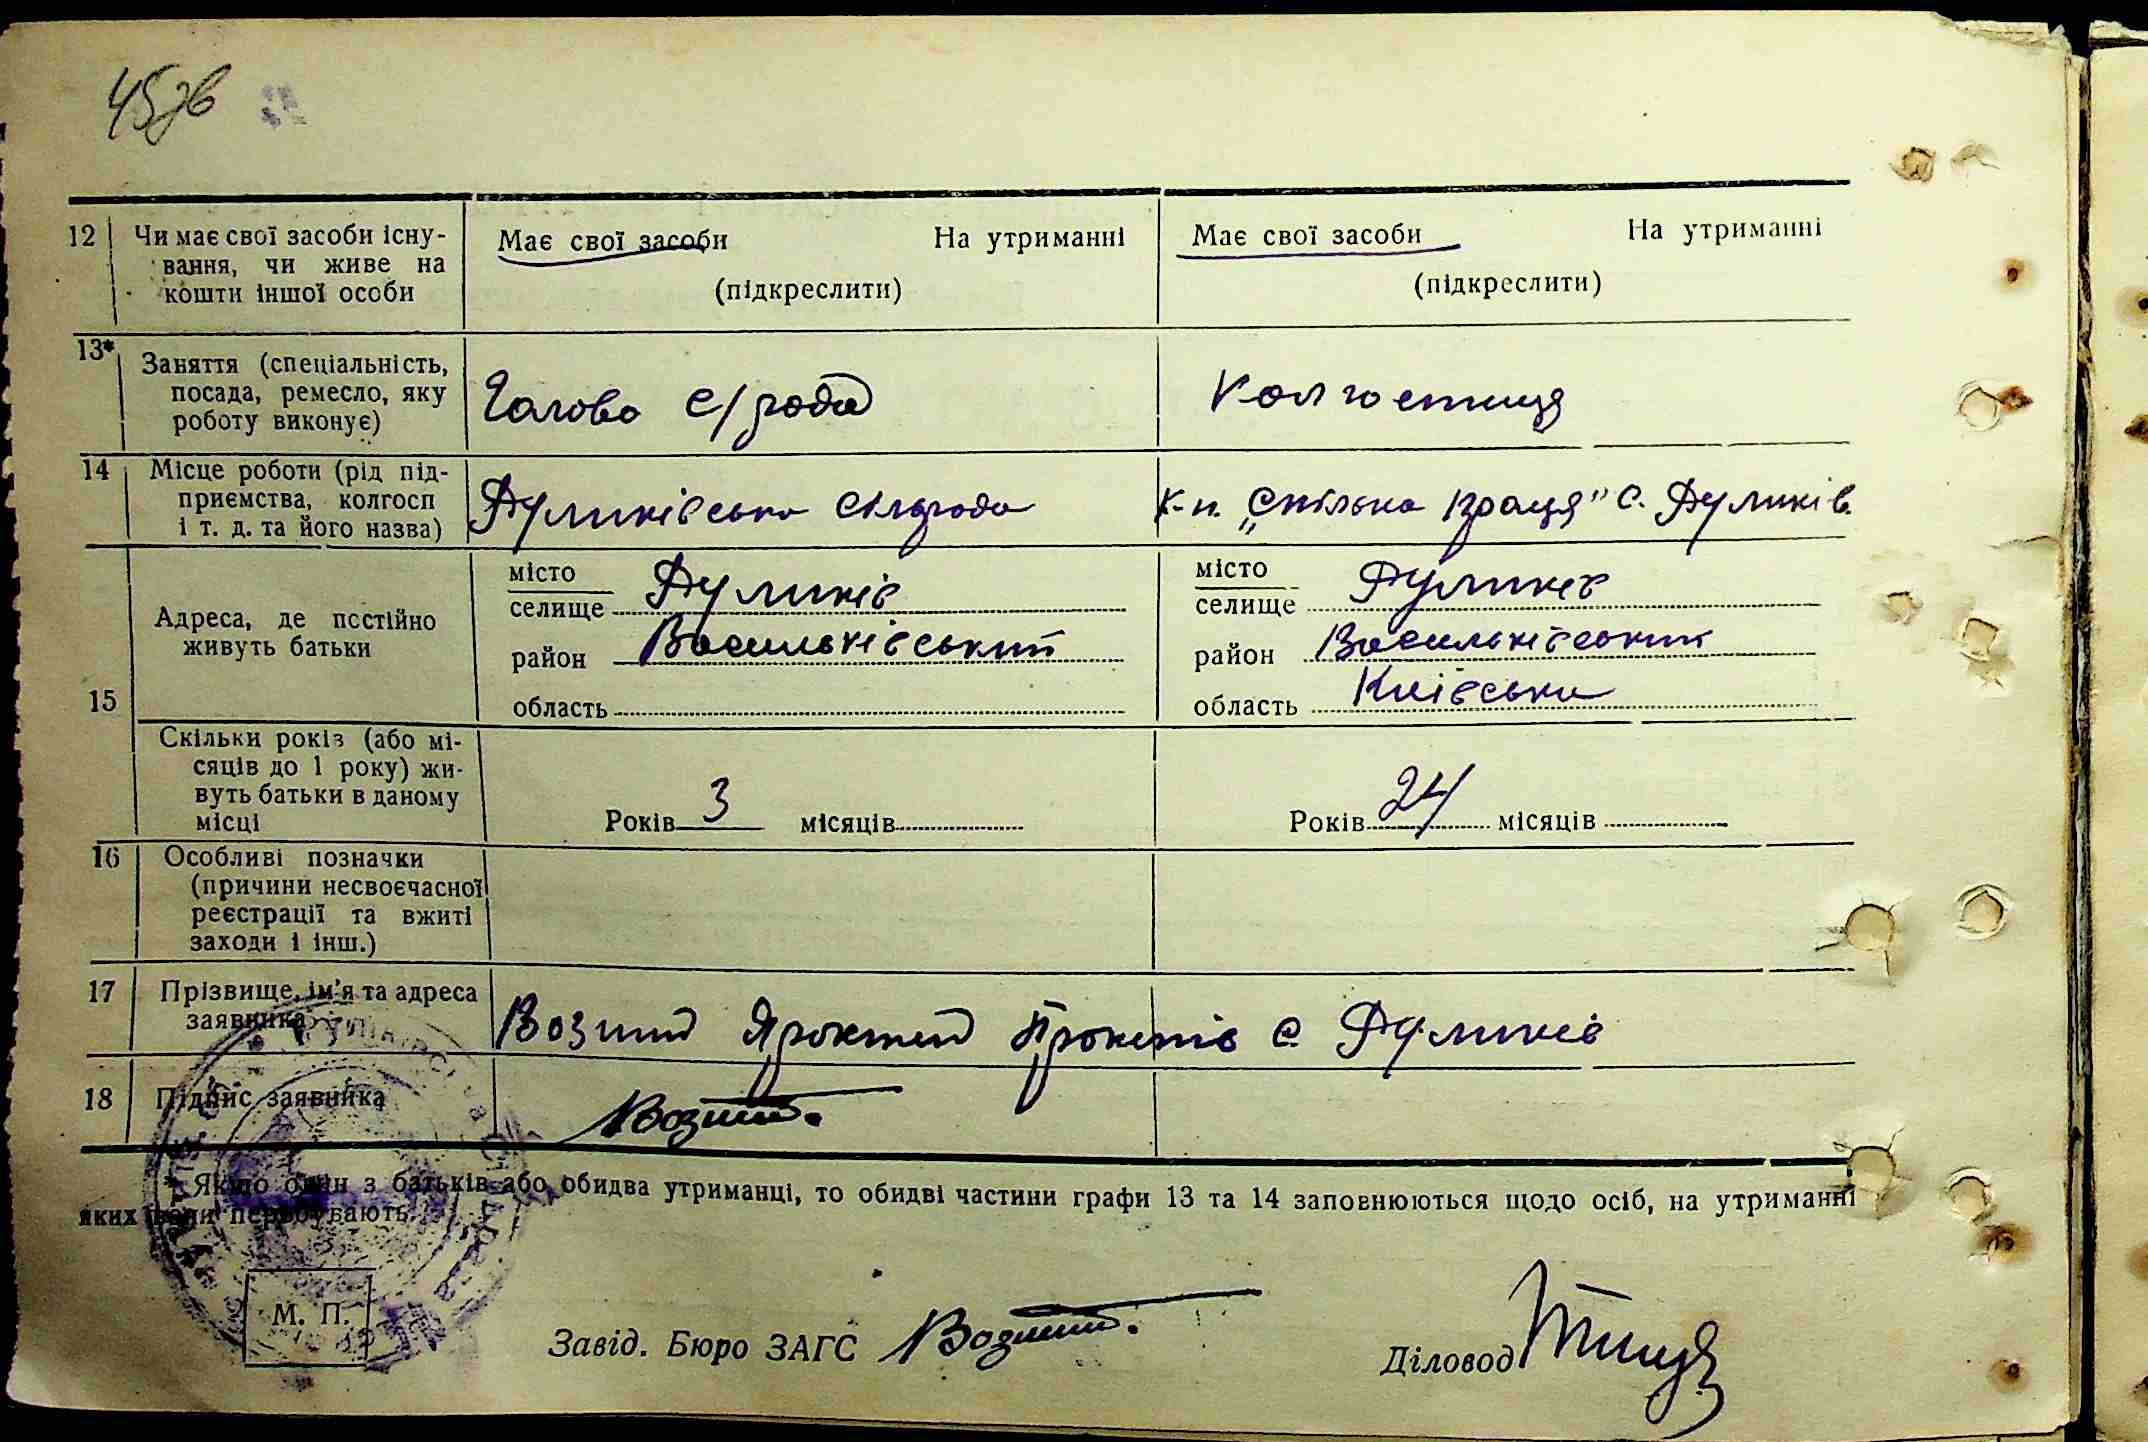 45зв
12 Чи має свої засоби існу-
вання, чи живе на
кошти іншої особи
Має свої засоби На утриманні
(підкреслити)
Має свої засоби На утриманні
(підкреслити)
13* Заняття (спеціальність,
посада, ремесло, яку
роботу виконує)
Голова с/ради
Колгоспниця
14 Місце роботи (рід під-
приємства, колгосп
і т. д. та його назва)
Дуликівська сілрада
К-п. „Спільна праця" с. Дуликів.
15
Адреса, де постійно
живуть батьки
місто
селище Дуликів
район Васильківський
область
місто
селище Дуликів
район Васильківський
область Київська
Скільки років (або мі-
сяців до 1 року) жи-
вуть батьки в даному
місці
Років 3 місяців
Років 24 місяців
16 Особливі позначки
(причини несвоєчасної
реєстрації та вжиті
заходи і інш.)
17 Прізвище, ім'я та адреса
заявника
с. Дуликів
18 Підпис заявника
* Якщо один з батьків або обидва утриманці, то обидві частини графи 13 та 14 заповнюються щодо осіб, на утриманні
яких вони перебувають.
М. П.
Завід. Бюро ЗАГС
Діловод